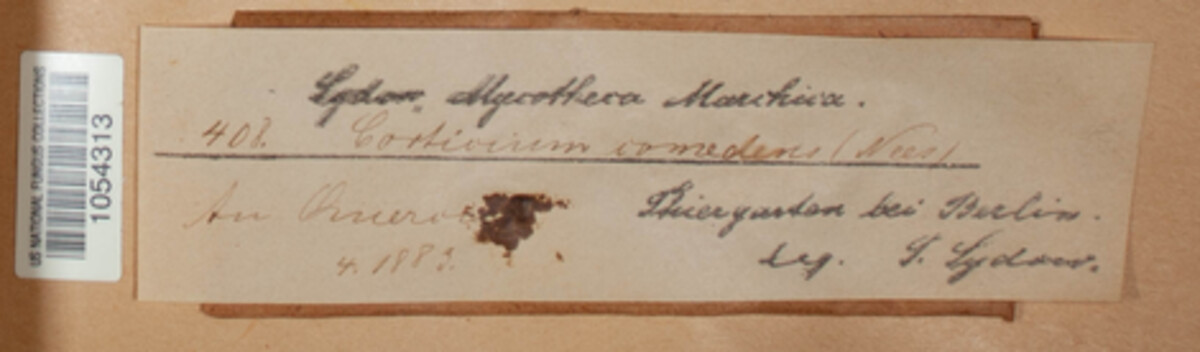 US NATIONAL FUNGUS COLLECTIONS
1054313
Sydow, Mycotheca Marchica.
408. Corticium comedens (Nees)
An Quercus
Thiergarten bei Berlin.
4.1883.
Leg. P. Sydow.